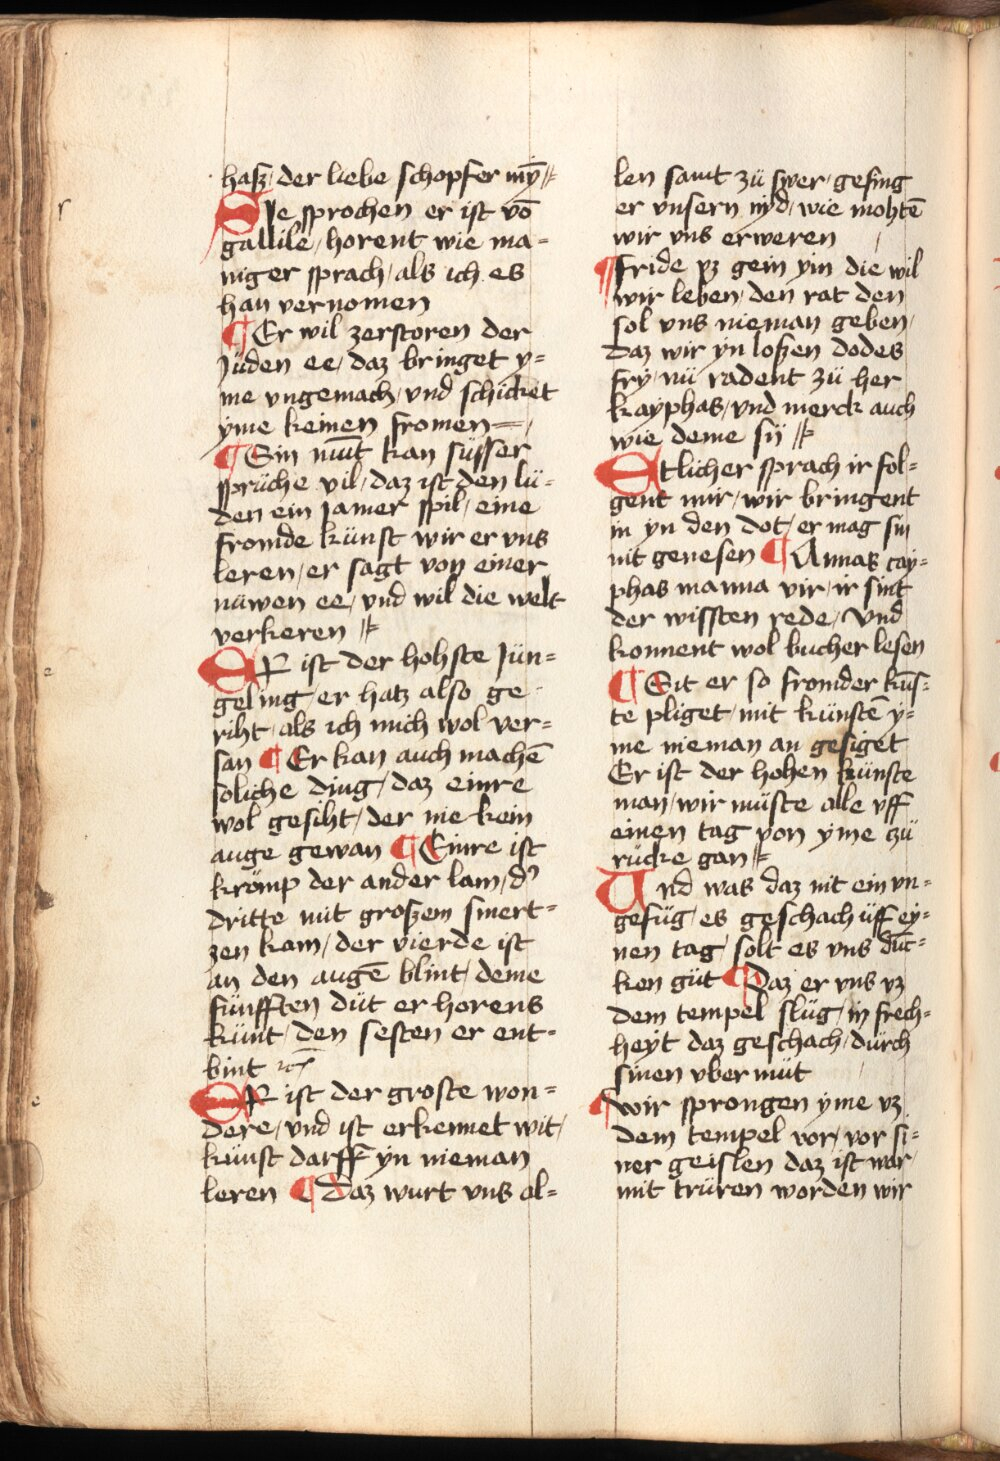 hasz / der liebe schopfer mȳ //
Sie sprochen er ist vō
gallile / horent wie ma =
niger sprach / als ich es
han vernomen
¶ Er wil zerstoren der
Juden ee / daz bringet y =
me vngemach / vnd schicket
yme keinen fromen =
¶ Sin mūt kan süsser
sprüche vil / daz ist den lü =
den ein jamer spil / eine
fromde künst wir er vns
leren / er sagt von einer
nüwen ee / vnd wil die welt
verkeren //
ER ist der hohste Jün =
geling / er hatz also ge
riht / als ich mich wol ver =
san ¶ Er kan auch machē
soliche ding / daz einre
wol gesiht / der nie kein
auge gewan ¶ Einre ist
kromp der ander lam / d'
dritte mit groszem smert =
zen kam / der vierde ist
an den augē blint / deme
fünfften düt er horens
künt / den sesten er ent =
bint
ER ist der groste won =
dere / vnd ist erkennet wit /
künst darff yn nieman
leren ¶ Daz wurt vns al =
len samt zü swer / gesing
er vnsern nyd / wie mohtē
wir vns erweren
¶ fride vz gein yin die wil
wir leben / den rat den
sol vns nieman geben /
daz wir yn loszen dodes
fry / nü radent zü her
kayphas / vnd merck auch
wie deme sy //
Etlicher sprach ir fol =
gent mir / wir bringent
in yn den dot / er mag sin
nit genesen ¶ Annas cay =
phas manna vir / ir sint
der wissten rede / Vnd
konnent wol bucher lesen
¶ Sit er so fromder kūs =
te pliget / mit künstē y =
me nieman an gesiget
Er ist der hohen künste
man / wir müste alle vff
einen tag von yme zü
rücke gan //
Vnd was daz nit ein vn =
gefüg / es geschach üff ey =
nen tag / solt es vns dūc =
ken güt ¶ Daz er vns vz
dem tempel slüg / in frech =
heyt daz geschach / dürch
sinen vber müt
¶ wir sprongen yme vz
dem tempel vor / vor si =
ner geislen daz ist war /
mit trüren worden wir